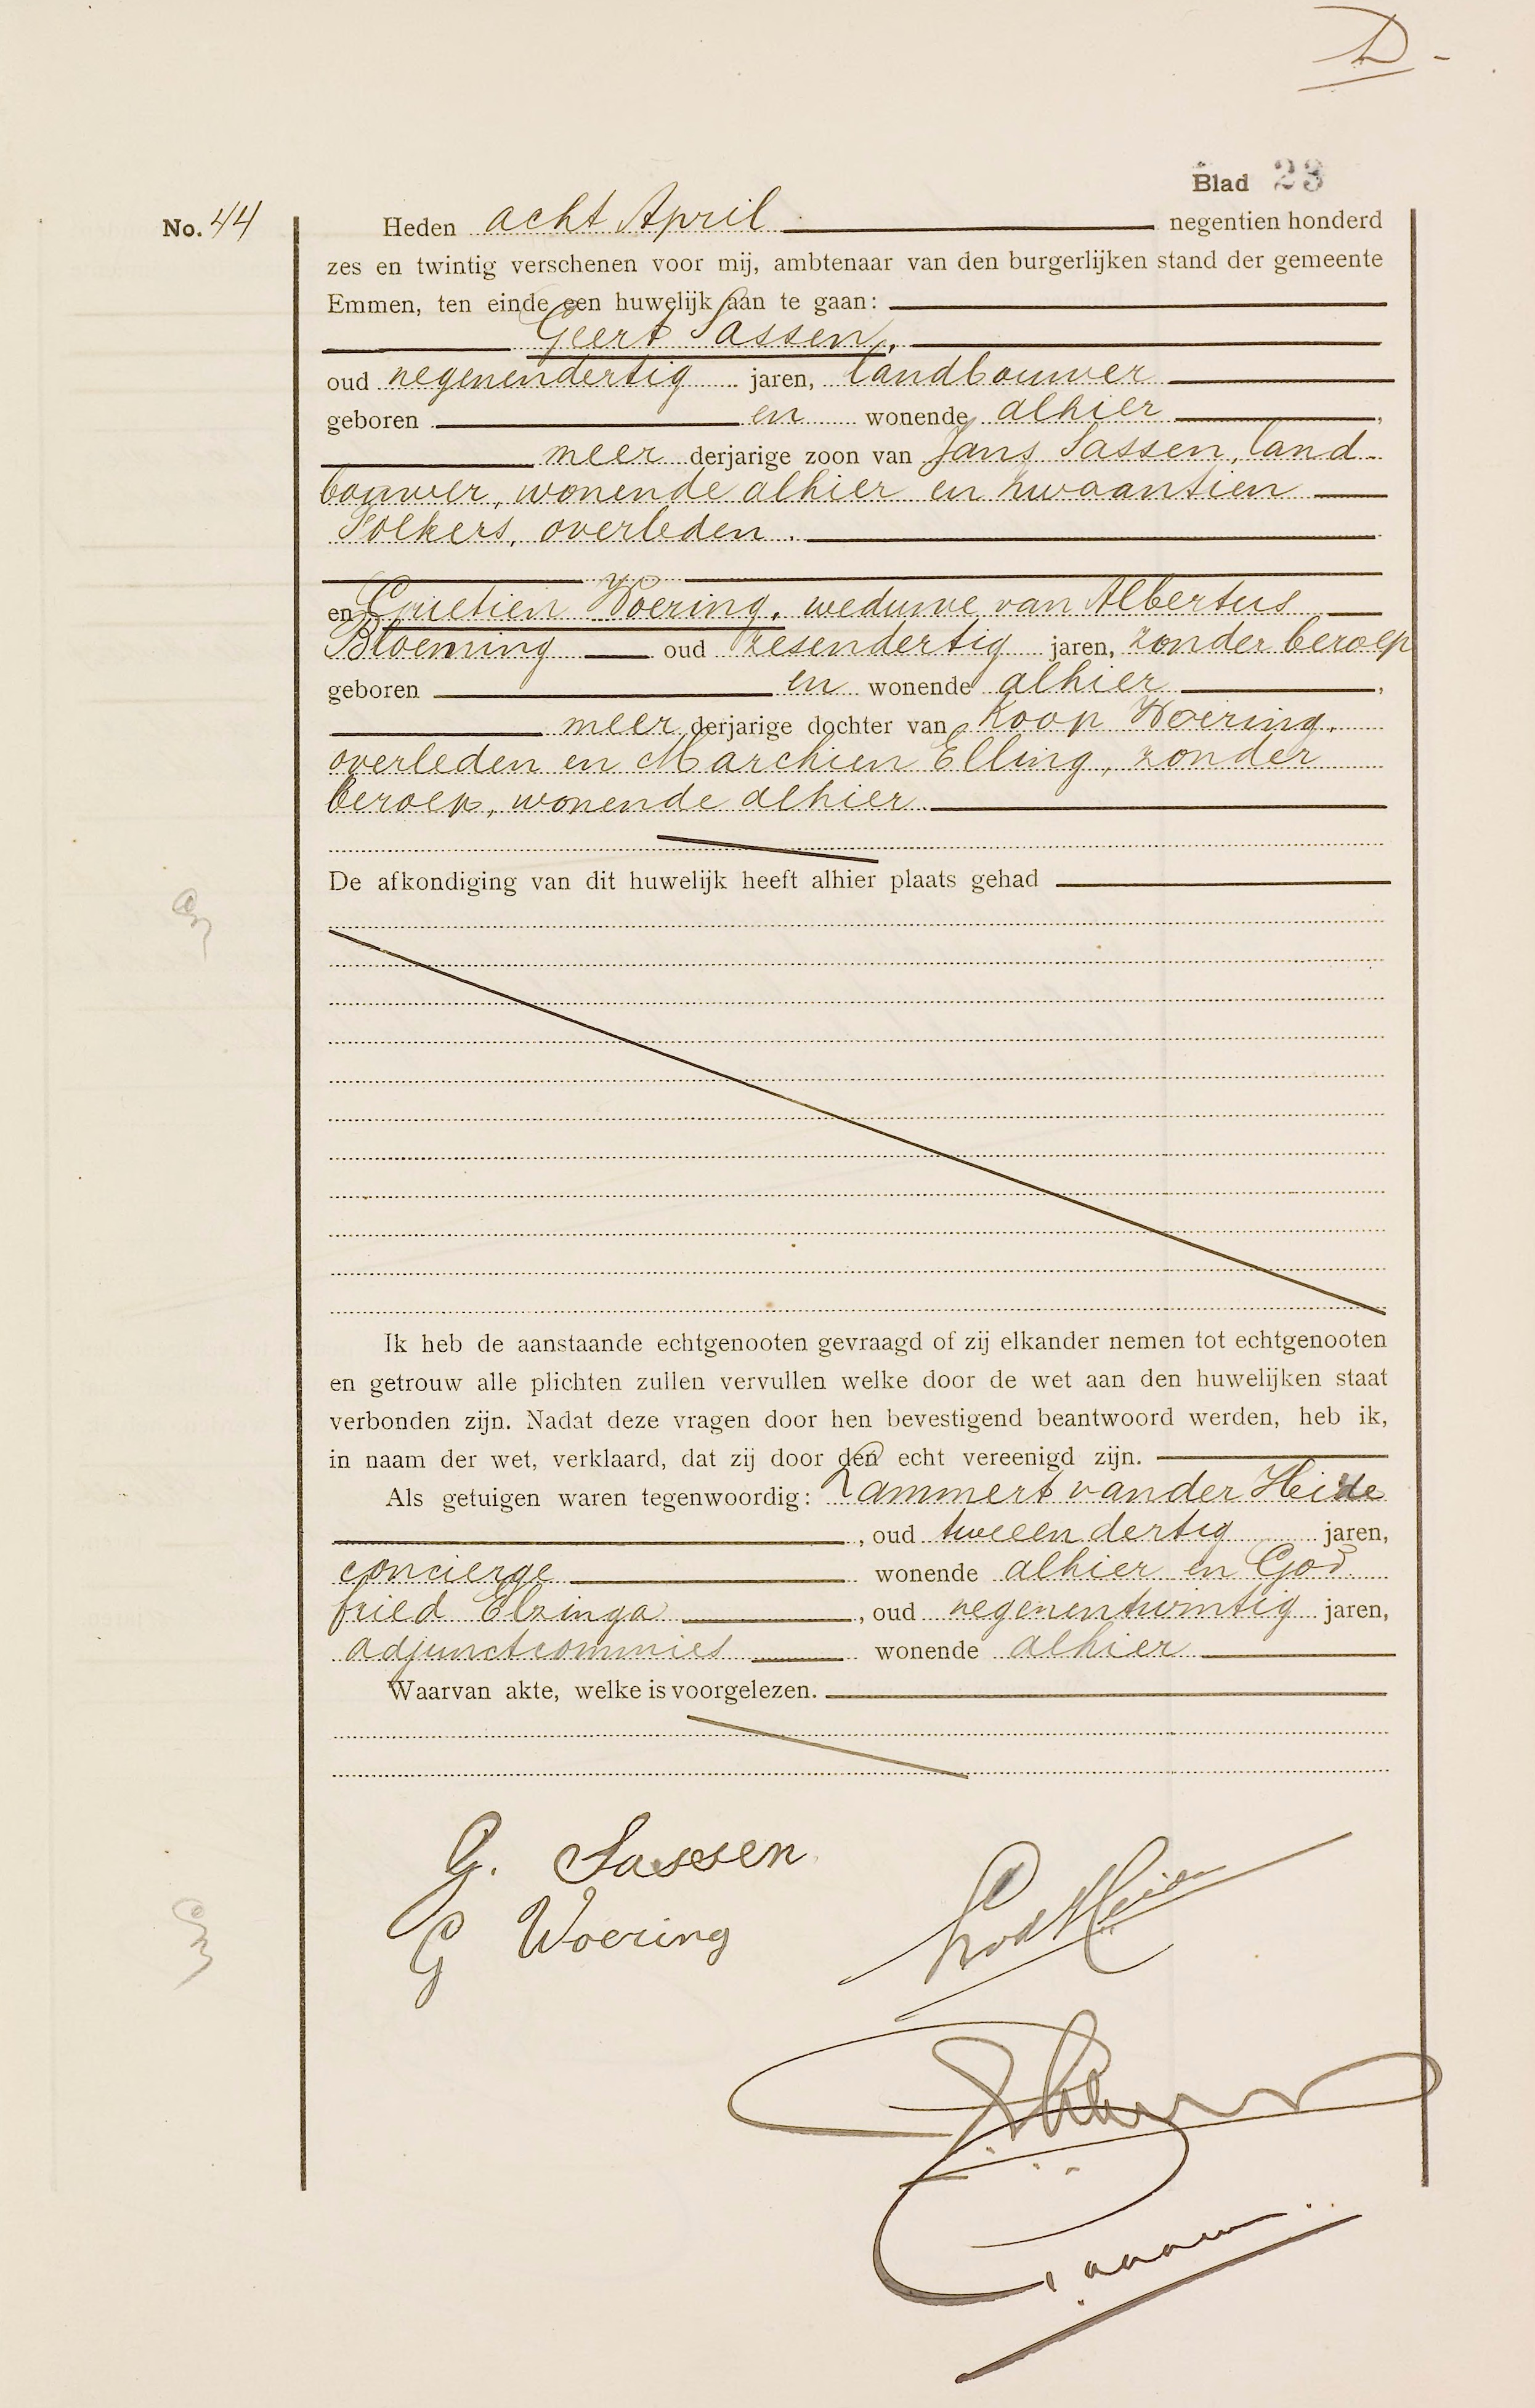 D -
Blad 23
No. 44
Heden acht April negentien honderd
zes en twintig verschenen voor mij, ambtenaar van den burgerlijken stand der gemeente
Emmen, ten einde een huwelijk aan te gaan:
Geert Sassen,
oud negenendertig jaren, landbouwer
geboren en wonende alhier,
meer derjarige zoon van Jans Sassen, land-
bouwer, wonende alhier en Zwaantien
Folkers, overleden.
en Grietien Woering, weduwe van Albertus
Bloeming oud zesendertig jaren, zonder beroep
geboren en wonende alhier,
meer derjarige dochter van Koop Woering,
overleden en Marchien Elling, zonder
beroep, wonende alhier.
De afkondiging van dit huwelijk heeft alhier plaats gehad
Ik heb de aanstaande echtgenooten gevraagd of zij elkander nemen tot echtgenooten
en getrouw alle plichten zullen vervullen welke door de wet aan den huwelijken staat
verbonden zijn. Nadat deze vragen door hen bevestigend beantwoord werden, heb ik,
in naam der wet, verklaard, dat zij door den echt vereenigd zijn.
Als getuigen waren tegenwoordig: Lammert van der Heide
, oud tweeendertig jaren,
concierge wonende alhier en God-
fried Elzinga, oud negenentwintig jaren,
adjunctcommies wonende alhier
Waarvan akte, welke is voorgelezen.
G. Sassen
G Woering